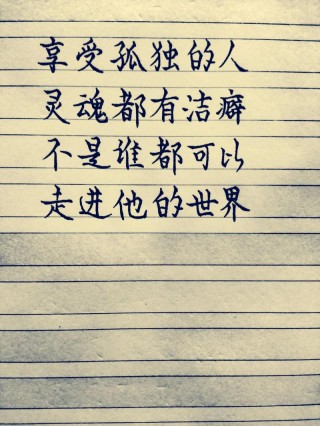 享受孤独的人
灵魂都有洁癖
不是谁都可以
走进他的世界